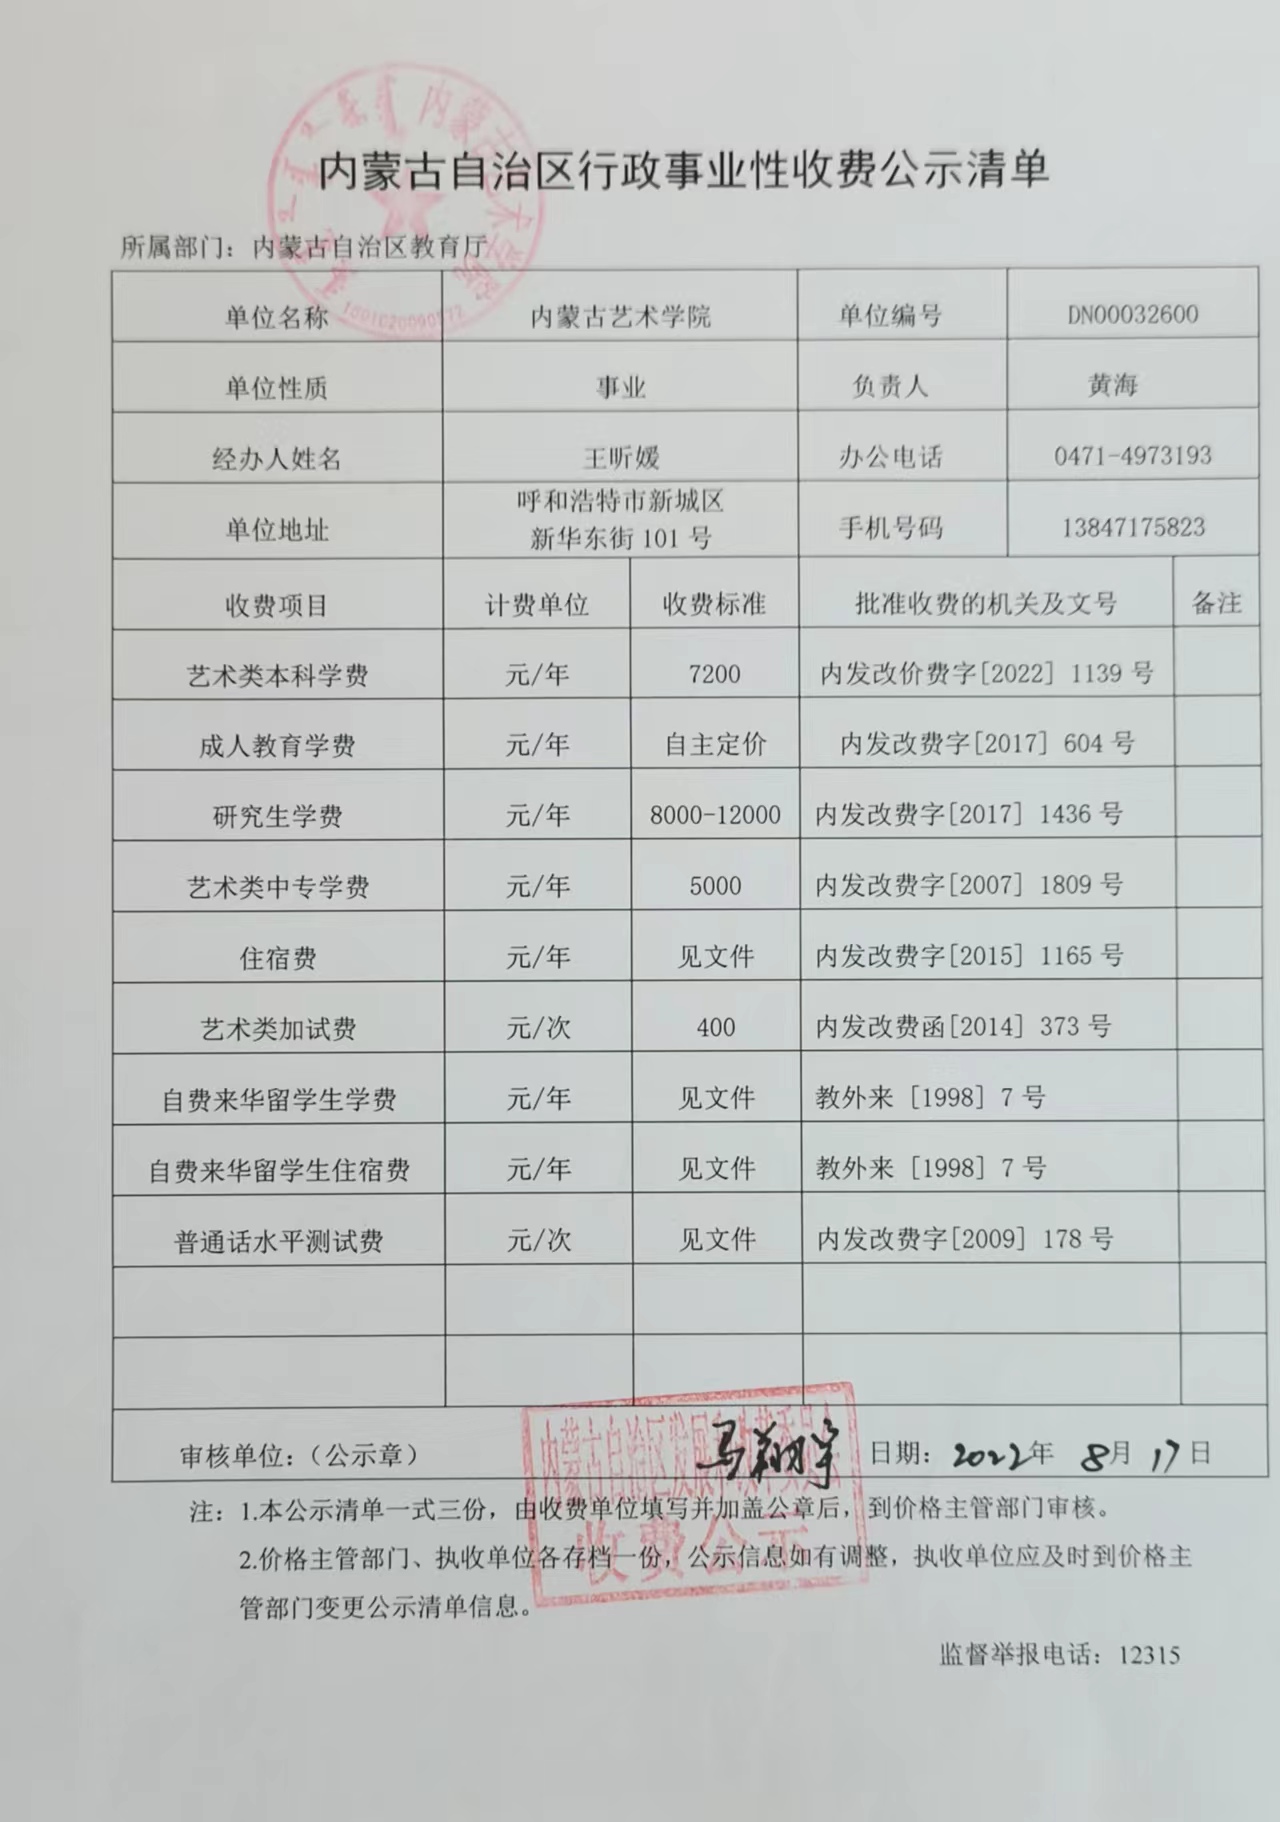 内蒙古自治区行政事业性收费公示清单
内蒙古艺术学院
所属部门：内蒙古自治区教育厅
单位名称 内蒙古艺术学院 单位编号 DN00032600
单位性质 事业 负责人 黄海
经办人姓名 王昕媛 办公电话 0471-4973193
单位地址 呼和浩特市新城区 手机号码 13847175823
新华东街 101 号
收费项目 计费单位 收费标准 批准收费的机关及文号 备注
艺术类本科学费 元/年 7200 内发改价费字[2022] 1139 号
成人教育学费 元/年 自主定价 内发改费字[2017] 604 号
研究生学费 元/年 8000-12000 内发改费字[2017] 1436 号
艺术类中专学费 元/年 5000 内发改费字[2007] 1809 号
住宿费 元/年 见文件 内发改费字[2015] 1165 号
艺术类加试费 元/次 400 内发改费函[2014] 373 号
自费来华留学生学费 元/年 见文件 教外来 [1998] 7 号
自费来华留学生住宿费 元/年 见文件 教外来 [1998] 7 号
普通话水平测试费 元/次 见文件 内发改费字[2009] 178 号
审核单位：（公示章） 马翔宇 日期：2022年 8月 17日
内蒙古自治区发展和改革委员会
收费公示
注：1.本公示清单一式三份，由收费单位填写并加盖公章后，到价格主管部门审核。
2.价格主管部门、执收单位各存档一份，公示信息如有调整，执收单位应及时到价格主
管部门变更公示清单信息。
监督举报电话：12315